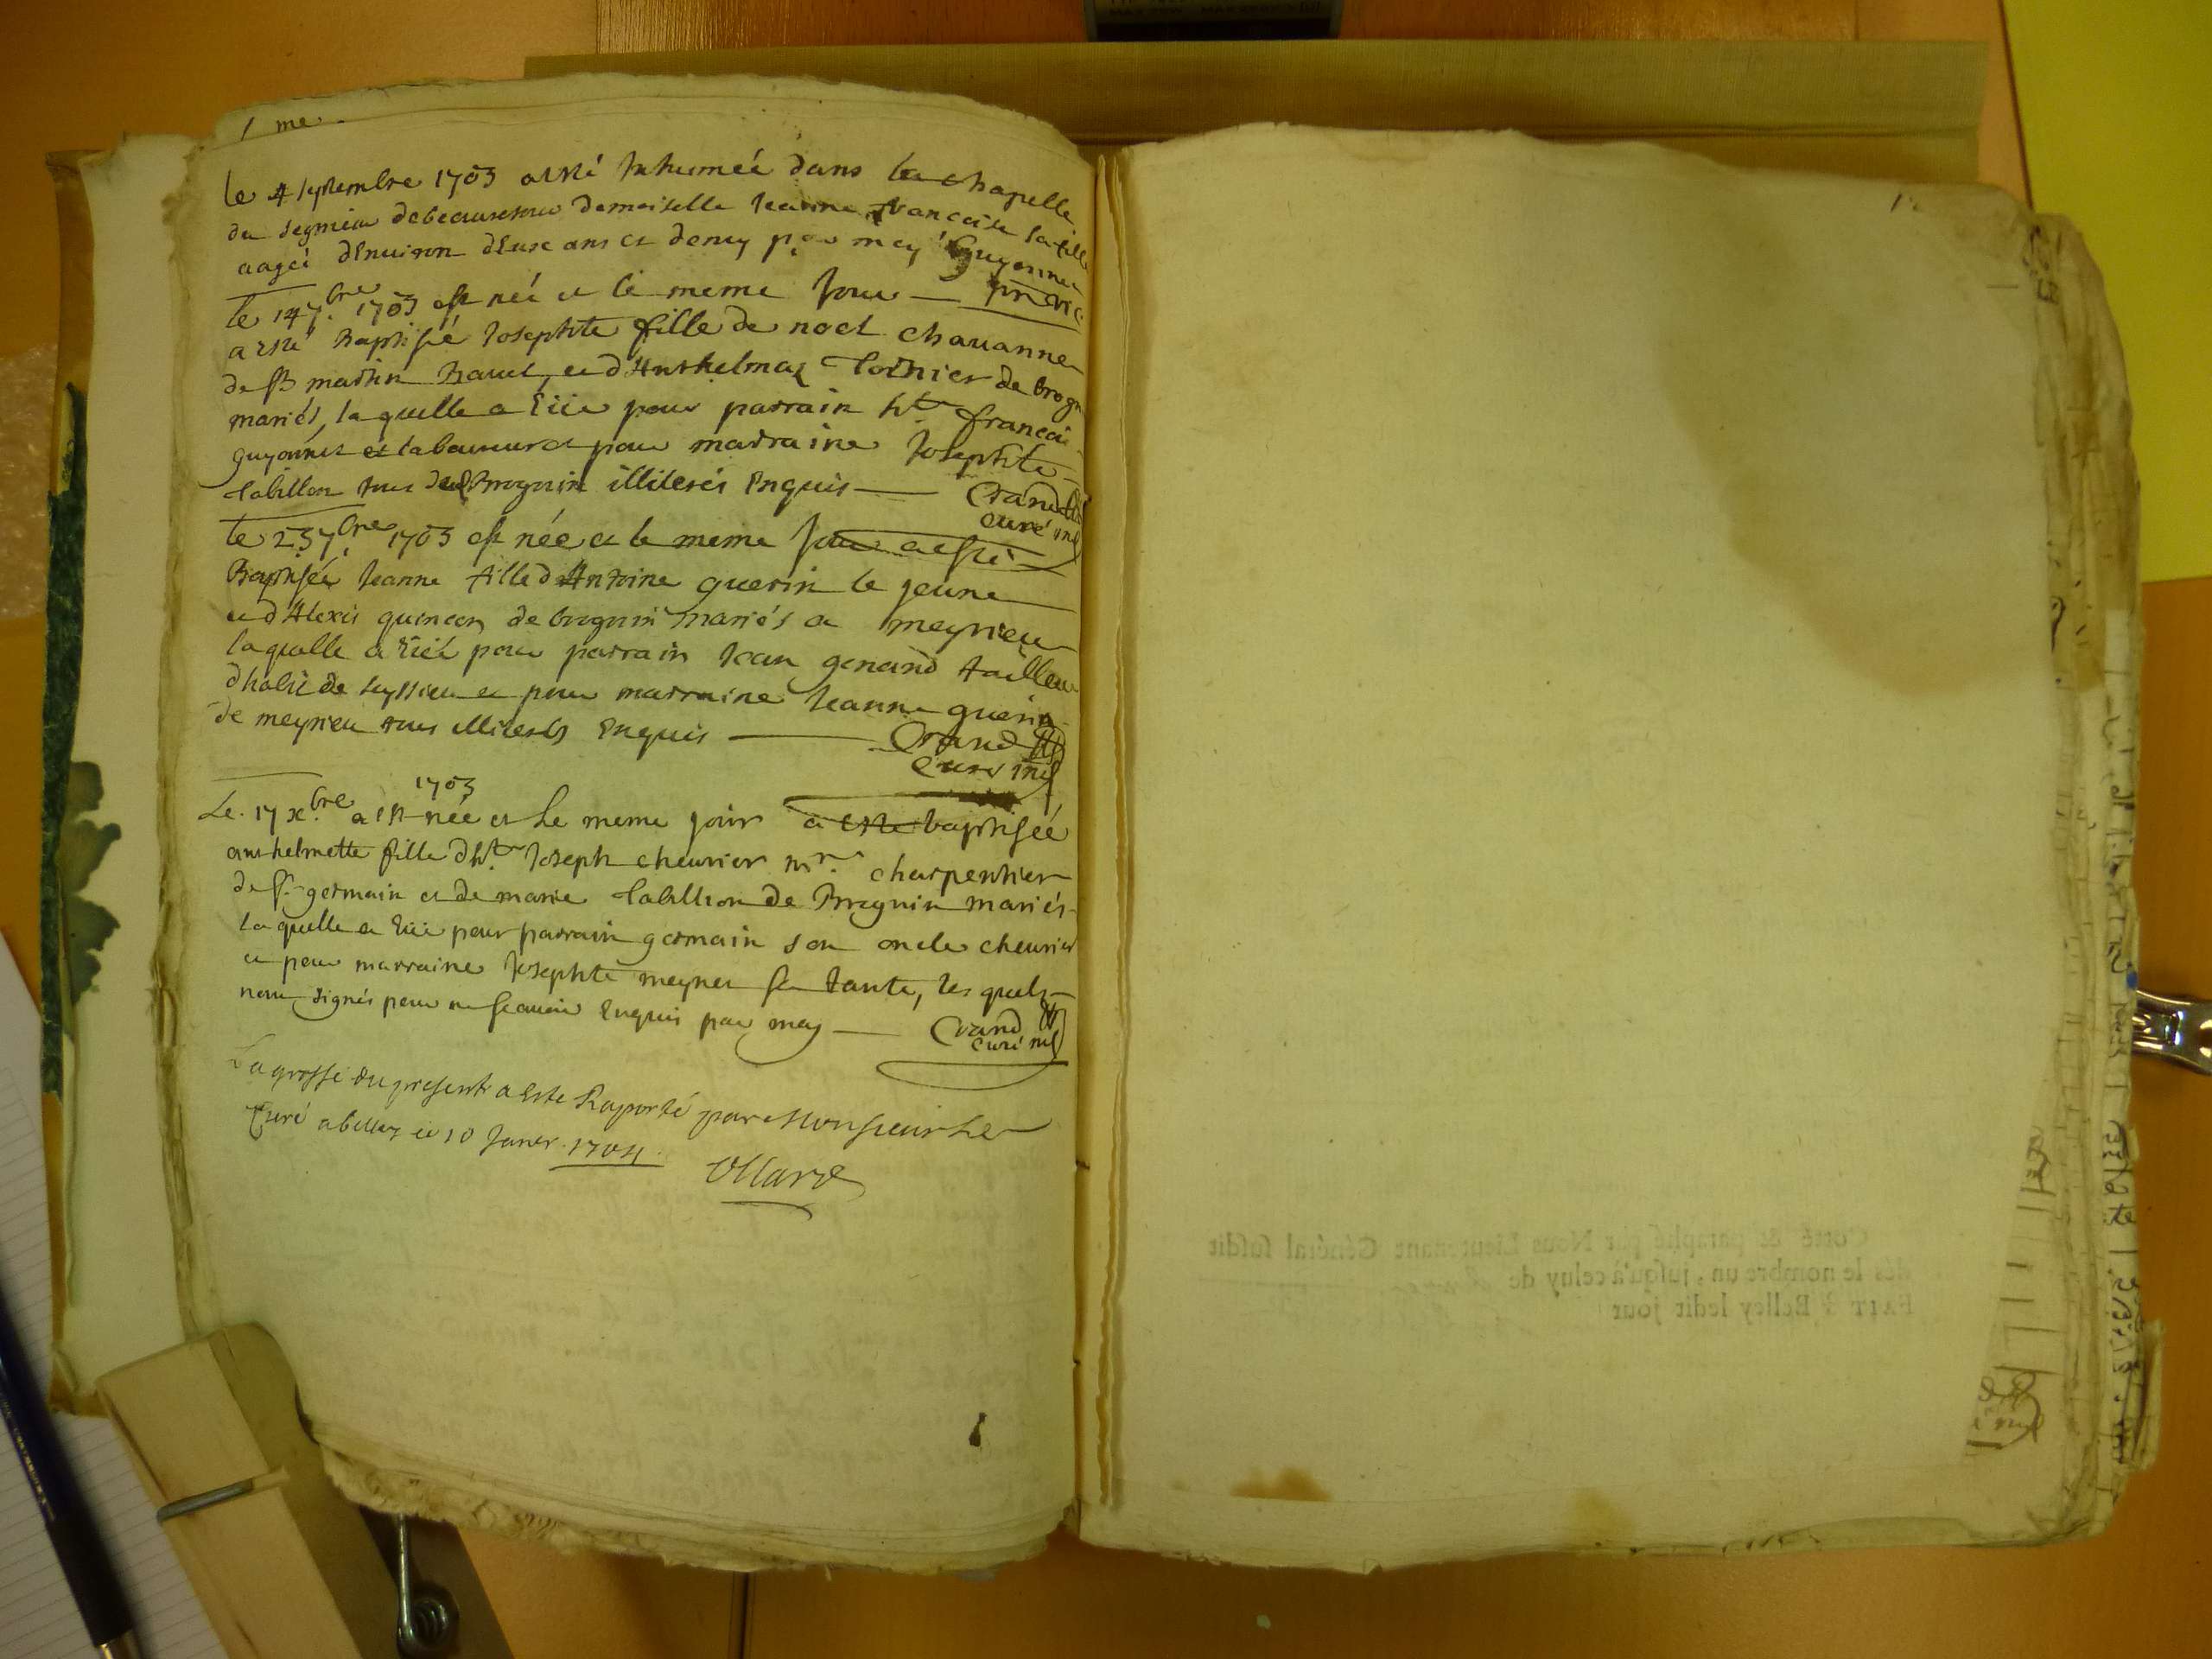 1 me.
le 4 septembre 1703 a esté Inhumée dans la chapelle
du segnieur demoiselle Jeanne francoise sa fille
aagée d'Environ deux ans et demy par moy Guyonnet
le 14 7.bre 1703 est née et le meme Jour
a esté Baptisée Josephte fille de noel chauanne
de St martin Bauel, et d'Anthelmaz de brogn
mariés, la quelle a Eüe pour parrain ht. francoi
guyonnet et pour marraine Josephte
tabillon tous deux Brognin illiterés Enquis — Crand
curé
le 23 7.bre 1703 est née et le meme Jour a esté
Baptisée Jeanne fille d'Antoine guerin le jeune
et d'Alexis quinson de brognin mariés a meyrieu
laquelle a Eüe pour parrain Jean genand tailleur
d'habit de seyssieu et pour marraine Jeanne guerin
de meyrieu tous illiterés Enquis — Crand
curé
1703
Le. 17 x.bre a est née et Le meme jour a esté baptisée
anthelmette fille d'ht. Joseph cheurier mr. charpentier
de St. germain et de marie tabillion de Brognin mariés
laquelle a Eüe pour parrain germain son oncle cheurier
et pour marraine Josephte meynet sa tante, les quels
non signés pour ne scauoir Enquis par moy — Crand
curé
La grosse du present a Este Raporté par Monsieur Le
Curé a belley ce 10 Janer. 1704
Cotté & paraphé par Nous Lieutenant Général susdit
dès le nombre un, jusqu'à celuy de
FAIT à Belley ledit jour